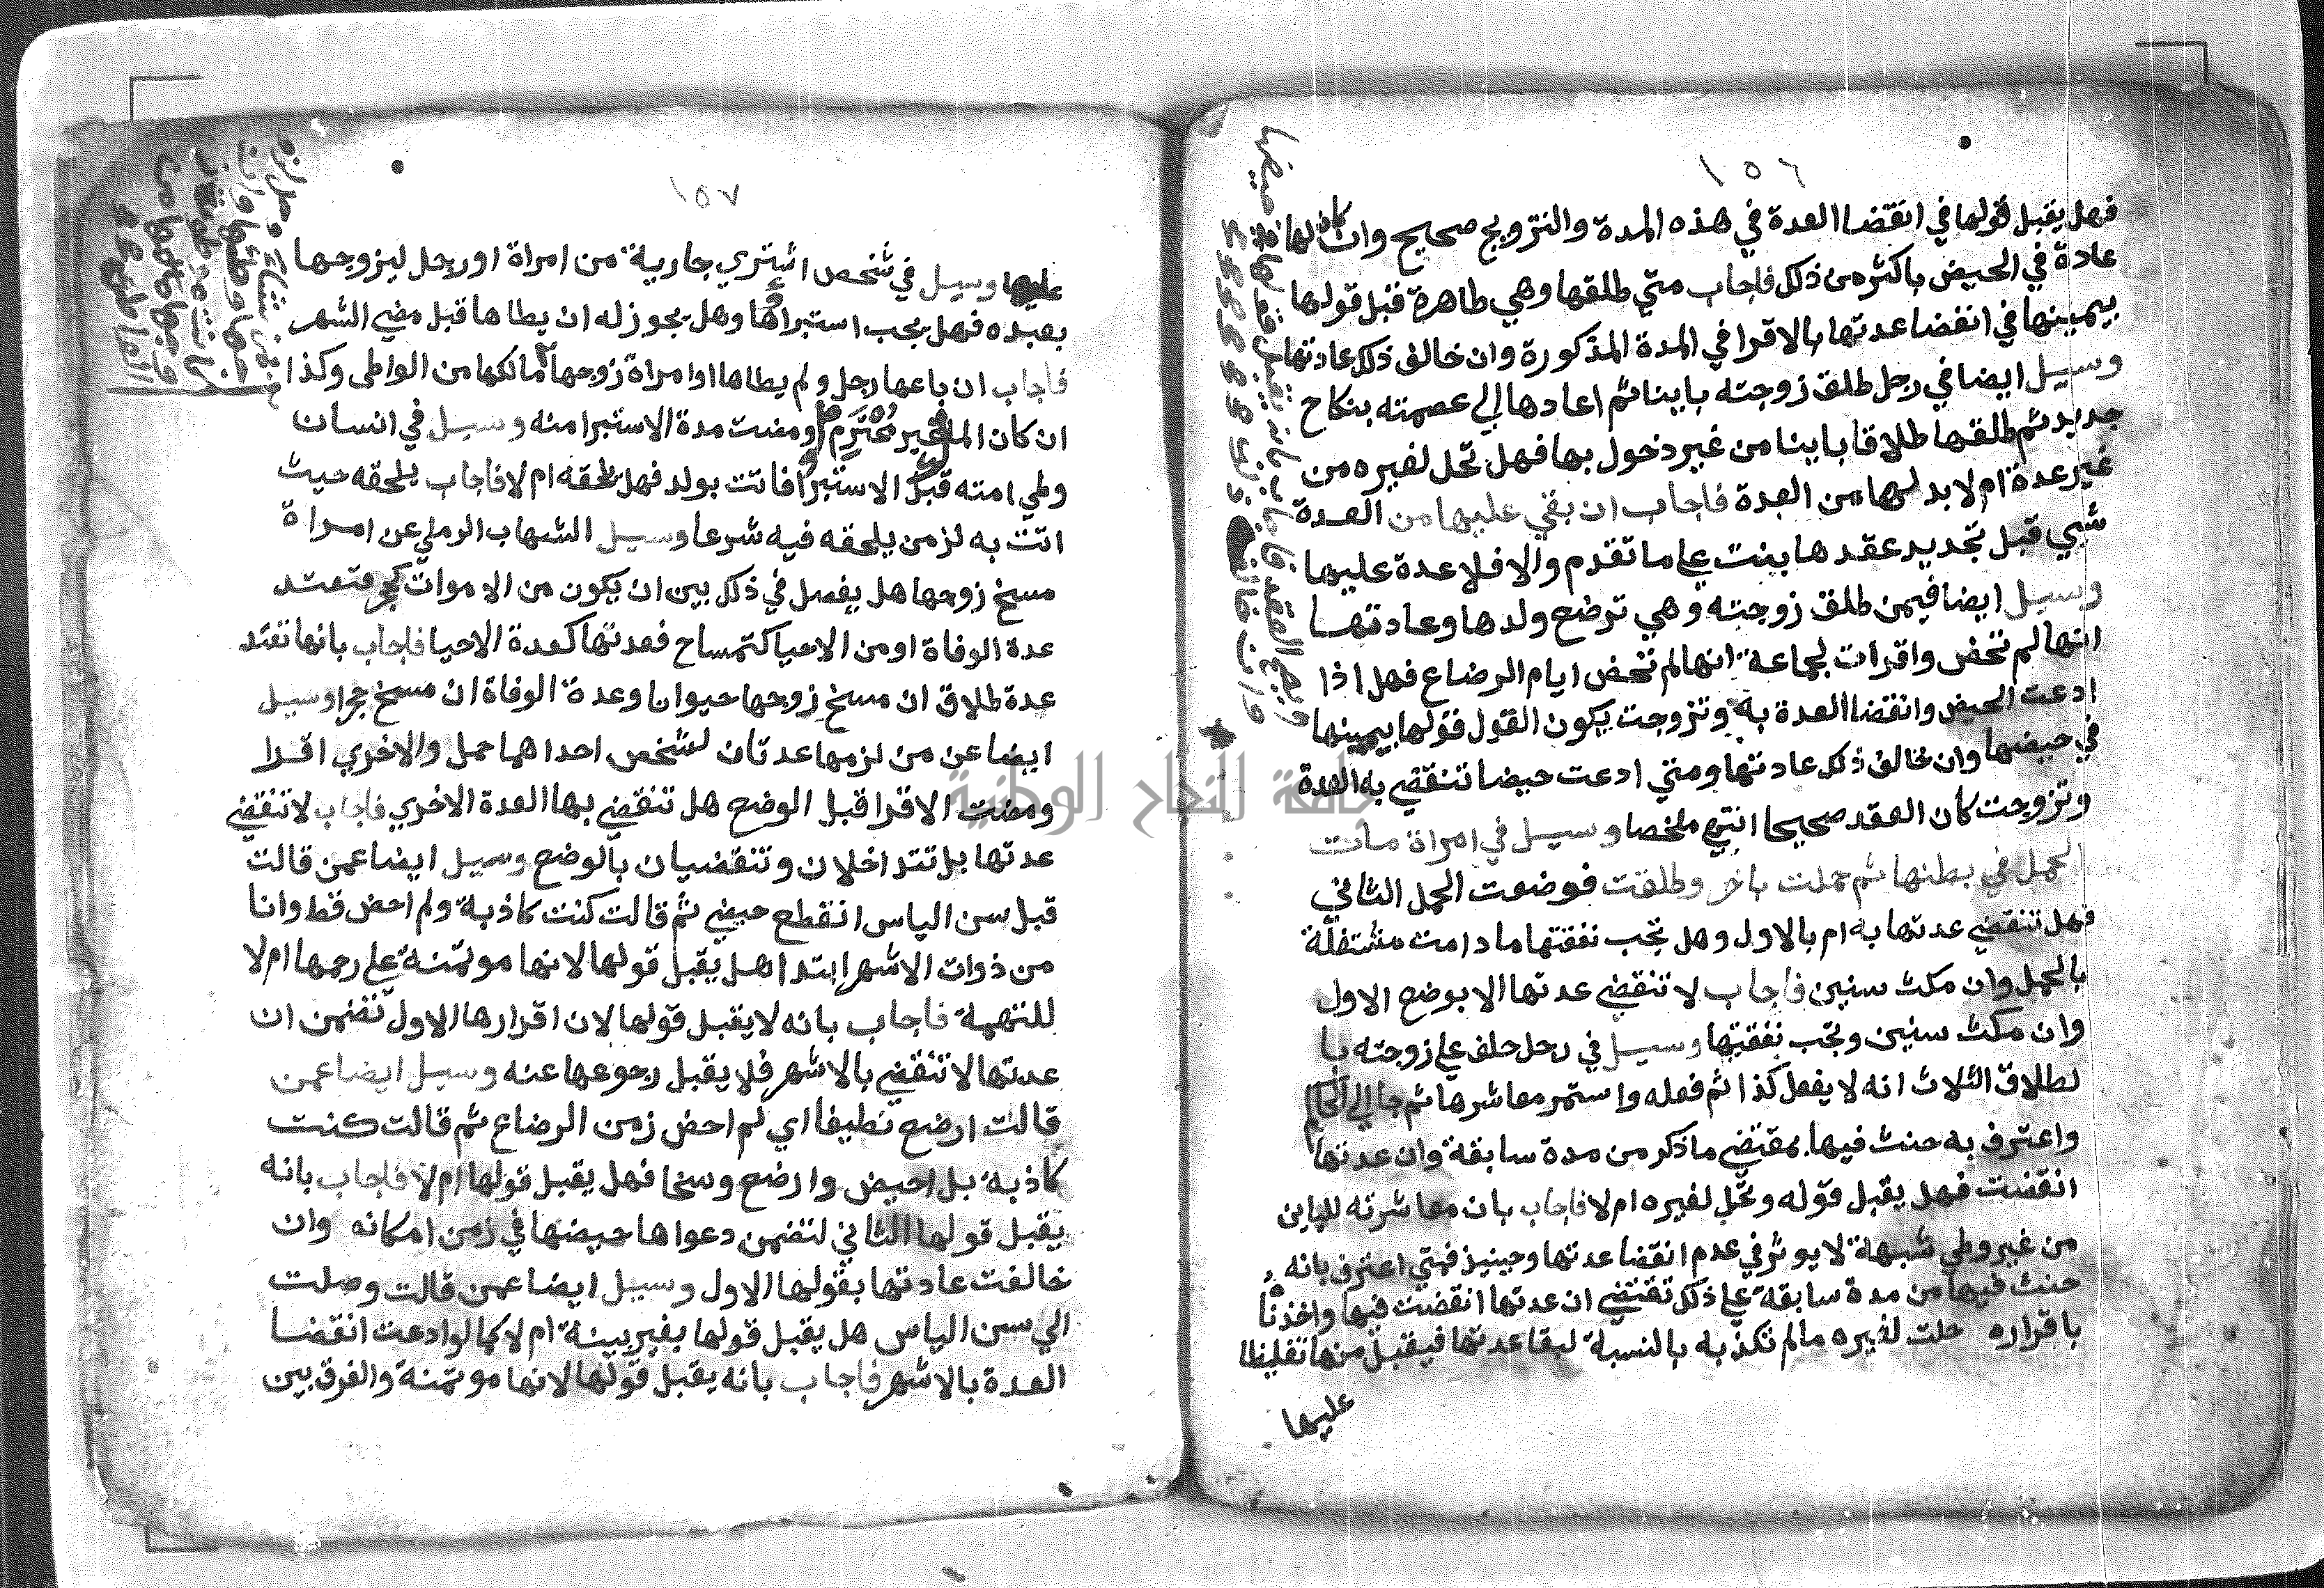 ١٥٦
فهل يقبل قولها في انقضا العدة في هذه المدة والتزويج صحيح وان كان لها
عادة في الحيض باكثر من ذلك فاجاب متي طلقها وهي طاهرة قبل قولها
بيمينها في انقضا عدتها بالاقرا في المدة المذكورة وان خالف ذلك عادتها
وسيل ايضا في رجل طلق زوجته باينا ثم اعادها الي عصمته بنكاح
جديد ثم طلقها طلاقا باينا من غير دخول بها فهل تحل لغيره من
غير عدة ام لا بد لها من العدة فاجاب ان بقي عليها من العدة
شي قبل تجديد عقدها بنت علي ما تقدم والا فلا عدة عليها
وسيل ايضا فيمن طلق زوجته وهي ترضع ولدها وعادتها
انها لم تحض واقرات لجماعة انها لم تحض ايام الرضاع فهل اذا
ادعت الحيض وانقضا العدة به وتزوجت يكون القول قولها بيمينها
في حيضها وان خالف ذلك عادتها ومتي ادعت حيضا تنقضي به العدة
وتزوجت كان العقد صحيحا انتهي ملخصا وسيل في امراة مات
الحمل في بطنها ثم حملت باخر وطلقت فوضعت الحمل الثاني
فهل تنقضي عدتها به ام بالاول وهل تجب نفقتها ما دامت مشتغلة
بالحمل وان مكث سنين فاجاب لا تنقضي عدتها الا بوضع الاول
وان مكث سنين وتجب نفقتها وسيل في رجل حلف علي زوجته با
لطلاق الثلاث انه لا يفعل كذا ثم فعله واستمر معاشرها ثم جا الي الحاكم
واعترف به حنث فيها بمقتضي ما ذكر من مدة سابقة وان عدتها
انقضت فهل يقبل قوله وتحل لغيره ام لا فاجاب بان معاشرته للباين
من غير وطي شبهة لا يوثر في عدم انقضا عدتها وحينيذ فمتي اعترف بانه
حنث فيها من مدة سابقة علي ذلك تقتضي ان عدتها انقضت فيها واخذناه
باقراره حلت لغيره ما لم تكذبه بالنسبة لبقا عدتها فيقبل منها تغليظا
عليها
١٥٧
عليها وسيل في شخص اشتري جارية من امراة او رجل ليزوجها
بعبده فهل يجب استبراؤها وهل يجوز له ان يطاها قبل مضي الشهر
فاجاب ان باعها رجل ولم يطاها او امراة زوجها مالكها من الواطي وكذا
ان كان الما غير محترم او مضت مدة الاستبرا منه وسيل في انسان
وطي امته قبل الاستبرا فاتت بولد فهل يلحقه ام لا فاجاب يلحقه حيث
اتت به لزمن يلحقه فيه شرعا وسيل الشهاب الرملي عن امراة
مسخ زوجها هل يفصل في ذلك بين ان يكون من الاموات كحجر فتعتد
عدة الوفاة او من الاحيا كتمساح فعدتها كعدة الاحيا فاجاب بانها تعتد
عدة طلاق ان مسخ زوجها حيوانا وعدة الوفاة ان مسخ حجرا وسيل
ايضا عن من لزمها عدتان لشخص احداهما حمل والاخري اقرا
ومضت الاقرا قبل الوضع هل تنقضي بها العدة الاخري فاجاب لا تنقضي
عدتها بل تتداخلان وتنقضيان بالوضع وسيل ايضا عمن قالت
قبل سن الياس انقطع حيضي ثم قالت كنت كاذبة ولم احض قط وانا
من ذوات الاشهر ابتدا هل يقبل قولها لانها موتمنة علي رحمها ام لا
للتهمة فاجاب بانه لا يقبل قولها لان اقرارها الاول تضمن ان
عدتها لا تنقضي بالاشهر فلا يقبل رجوعها عنه وسيل ايضا عمن
قالت ارضع نظيفا اي لم احض زمن الرضاع ثم قالت كنت
كاذبة بل احيض وارضع وسخا فهل يقبل قولها ام لا فاجاب بانه
يقبل قولها الثاني لتضمن دعواها حيضها في زمن امكانه وان
خالفت عادتها بقولها الاول وسيل ايضا عمن قالت وصلت
الي سن الياس هل يقبل قولها بغير بينة ام لا كما لو ادعت انقضا
العدة بالاشهر فاجاب بانه يقبل قولها لانها موتمنة والفرق بين
جامعة النجاح الوطنية